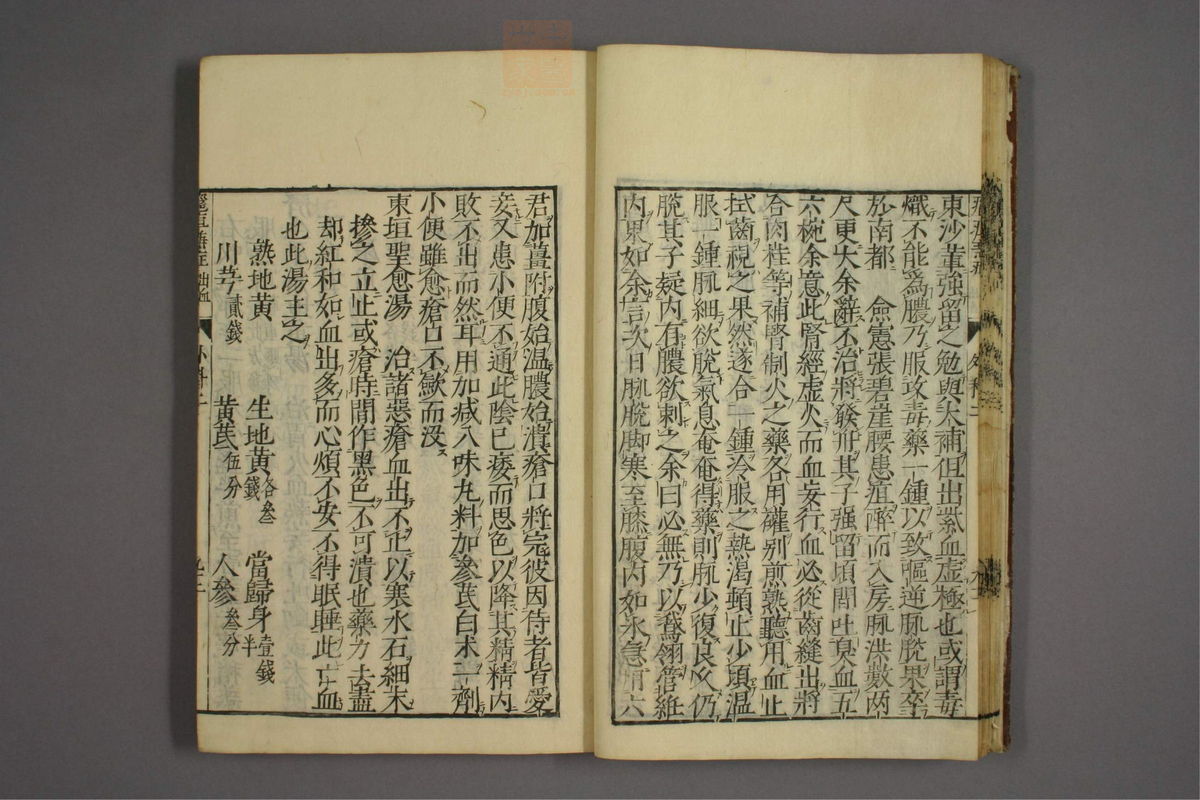 東沙董強留之勉與大補但出紫血虛極也或謂毒
熾不能爲膿乃服攻毒藥一鍾以致嘔逆脉脫果卒
於南都　僉憲張碧崖腰患疽醉而入房脉洪數兩
尺更大余辭不治將發舟其子強留頃間吐臭血五
六椀余意此腎經虛火而血妄行血必從齒縫出將
合肉桂等補腎制火之藥各用罐别煎熟聽用血止
拭齒視之果然遂合一鍾冷服之熱渴頓止少頃温
服一鍾脉細欲脫氣息奄奄得藥則脉少復良久仍
脫其子疑内有膿欲刺之余曰必無乃以鵞翎管絍
内果如余言次日脉脫脚寒至膝腹内如氷急
君加薑附腹始温膿始潰瘡口將完彼因侍者皆愛
妾又患小便不通此陰已痿而思色以降其精精内
敗不出而然耳用加减八味丸料加參茋白朮一劑
小便雖愈瘡口不歛而没
東垣聖愈湯　治諸惡瘡血出不止以寒水石細末
摻之立止或瘡時間作黑色不可潰也藥力去盡
却紅和如血出多而心煩不安不得眠睡此亡血
也此湯主之
熟地黄　生地黄各叁錢　當歸身壹錢半
川芎貳錢　黄茋伍分　人參叁分
外科二